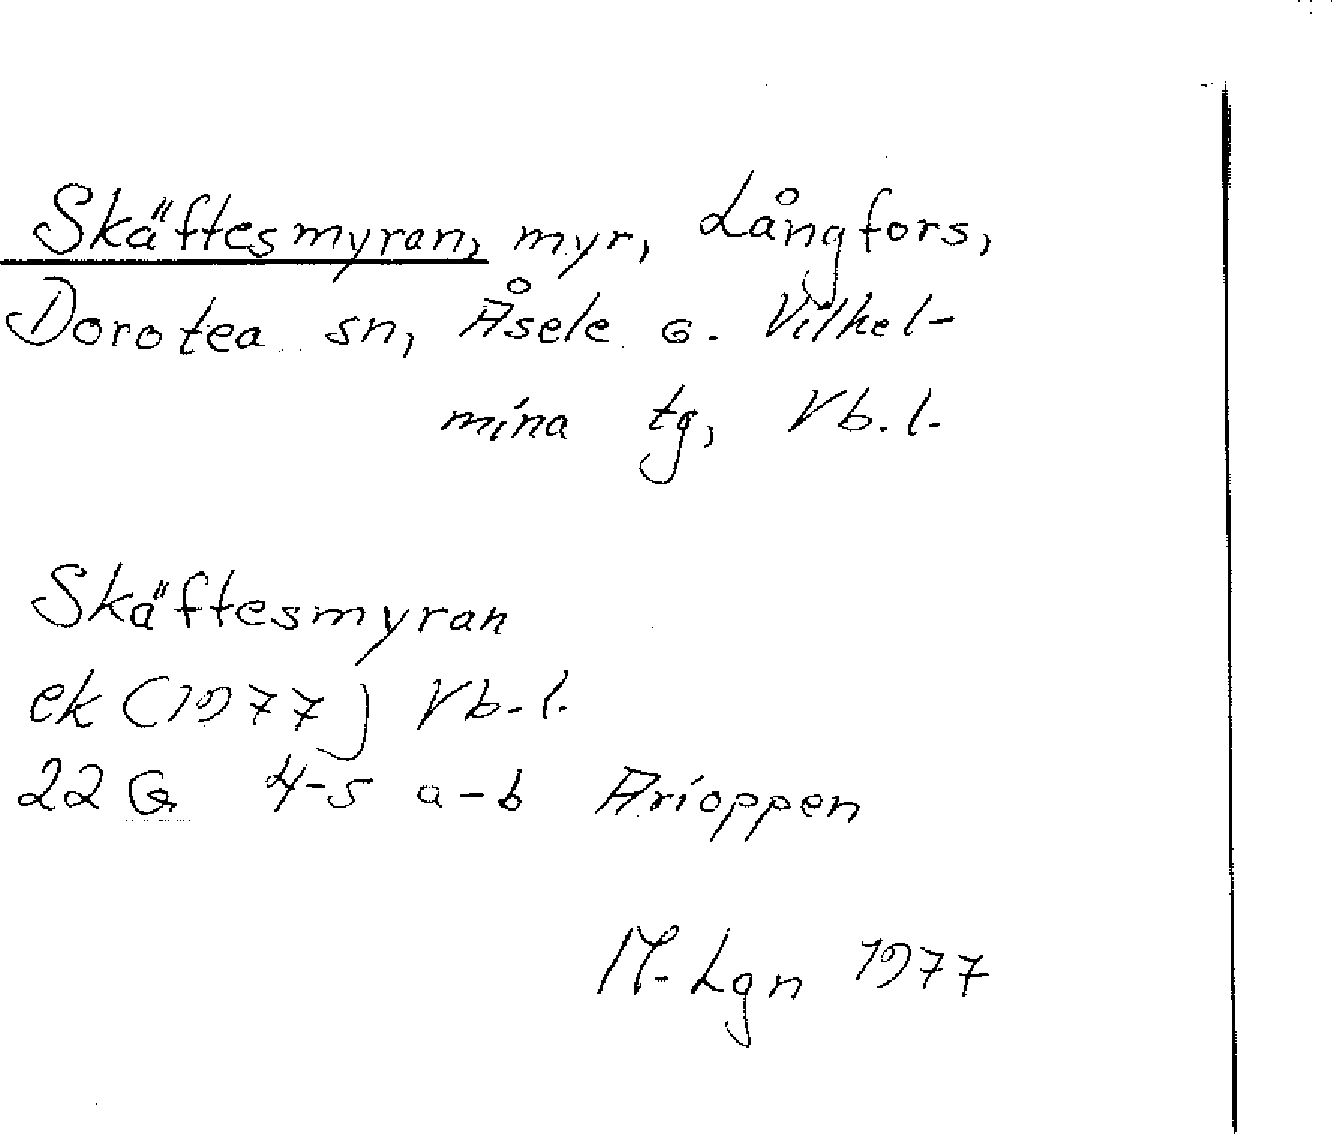 Skäftesmyran, myr, Långfors,
Dorotea sn, Åsele o. Vilhel-
mina tg, Vb. l.
Skäftesmyran
ek (1977) Vb. l.
22 G 4-5 a-b Arioppen
M. Lgn 1977